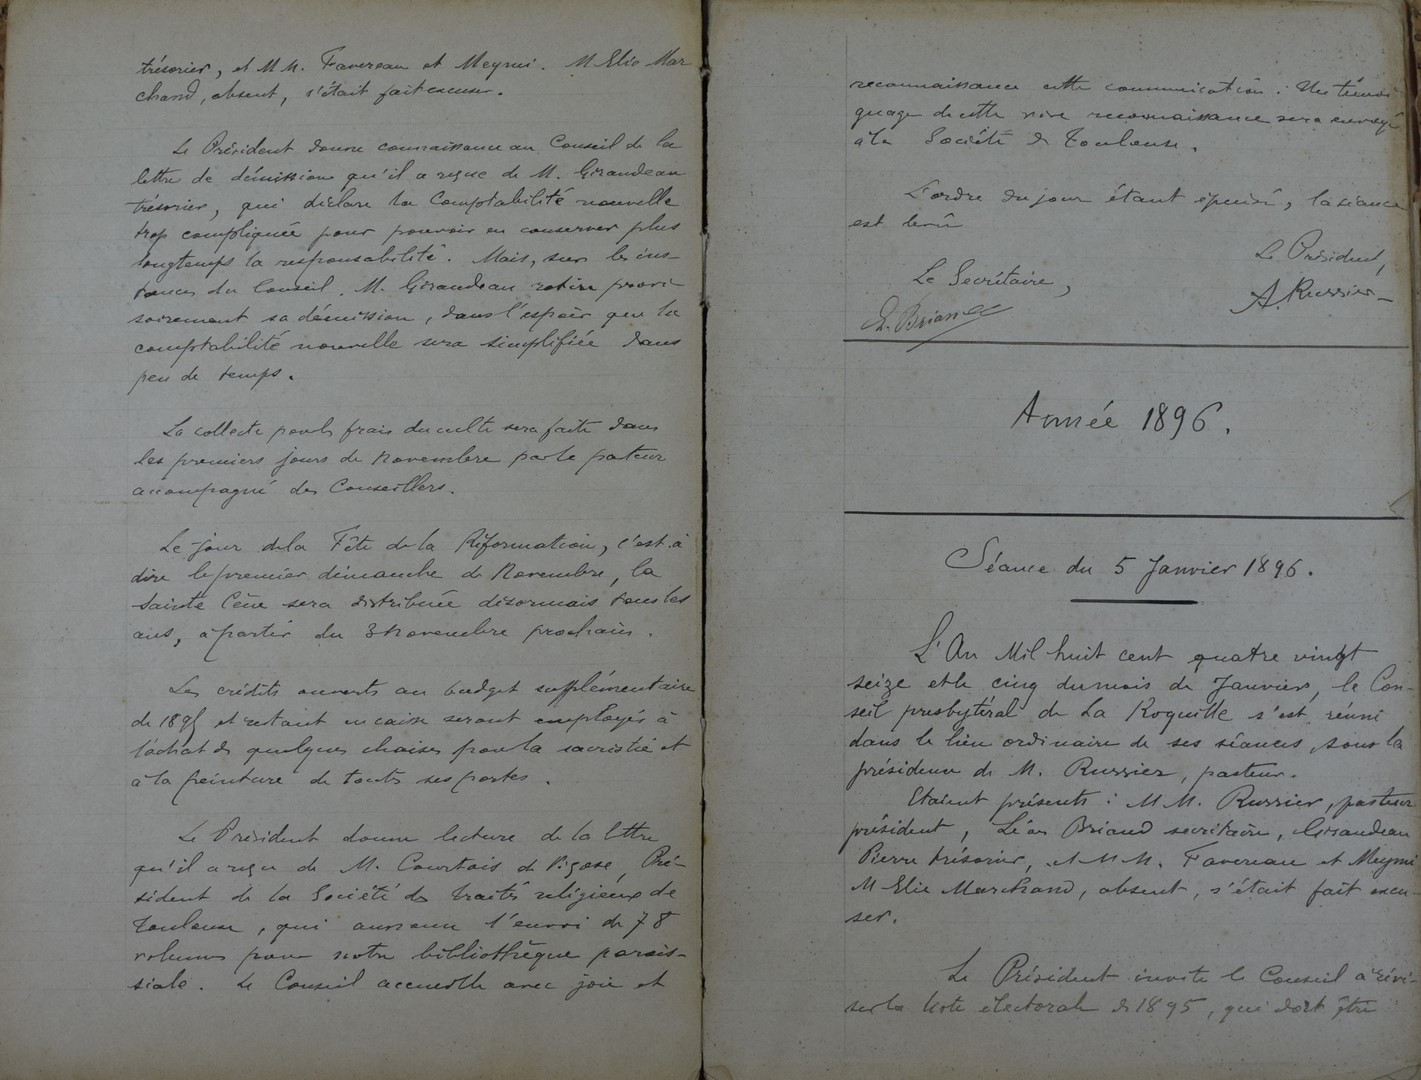 trésorier, et MM. Favereau et Meymi. M Elie Mar
chand, absent, s'était fait excuser.
Le Président donne connaissance au Conseil de la
lettre de démission qu'il a reçue de M. Girandeau
trésorier, qui déclare la Comptabilité nouvelle
trop compliquée pour pouvoir en conserver plus
longtemps la responsabilité. Mais, sur les ins-
tances du Conseil, M. Girandeau retire provi-
soirement sa démission, dans l'espoir que la
comptabilité nouvelle sera simplifiée dans
peu de temps.
La collecte pour les frais du culte sera faite dans
les premiers jours de Novembre par le pasteur
accompagné des Conseillers.
Le jour de la Fête de la Réformation, c'est à
dire le premier dimanche de Novembre, la
Sainte Cène sera distribuée désormais tous les
ans, à partir du 3 Novembre prochain.
Les crédits ouverts au budget supplémentaire
de 1895 et restant en caisse seront employés à
l'achat de quelques chaises pour la sacristie et
à la peinture de toutes ses portes.
Le Président donne lecture de la lettre
qu'il a reçue de M. Courtois de Viçose, Pré-
sident de la Société des Traités religieux de
Toulouse, qui annonce l'envoi de 78
volumes pour notre bibliothèque parois-
siale. Le Conseil accueille avec joie et
reconnaissance cette communication. Un témoi
gnage de cette vive reconnaissance sera envoyé
à la Société de Toulouse.
L'ordre du jour étant épuisé, la séance
est levée
Le Président,
Le Secrétaire,
A. Russier
L. Briand
Année 1896.
Séance du 5 Janvier 1896.
L'An Mil huit cent quatre vingt
seize et le cinq du mois de Janvier, le Con-
seil presbytéral de La Roquille s'est réuni
dans le lieu ordinaire de ses séances, sous la
présidence de M. Russier, pasteur.
Etaient présents : MM. Russier, pasteur
président, Léon Briand secrétaire, Girandeau
Pierre trésorier, et MM. Favereau et Meymi
M Elie Marchand, absent, s'était fait excu-
ser.
Le Président invite le Conseil à révi-
ser la liste électorale de 1895, qui doit être